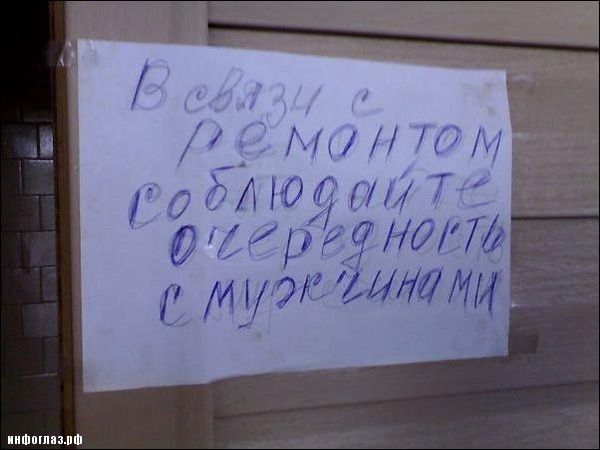 В связи с
ремонтом
соблюдайте
очередность
с мужчинами
инфоглаз.рф